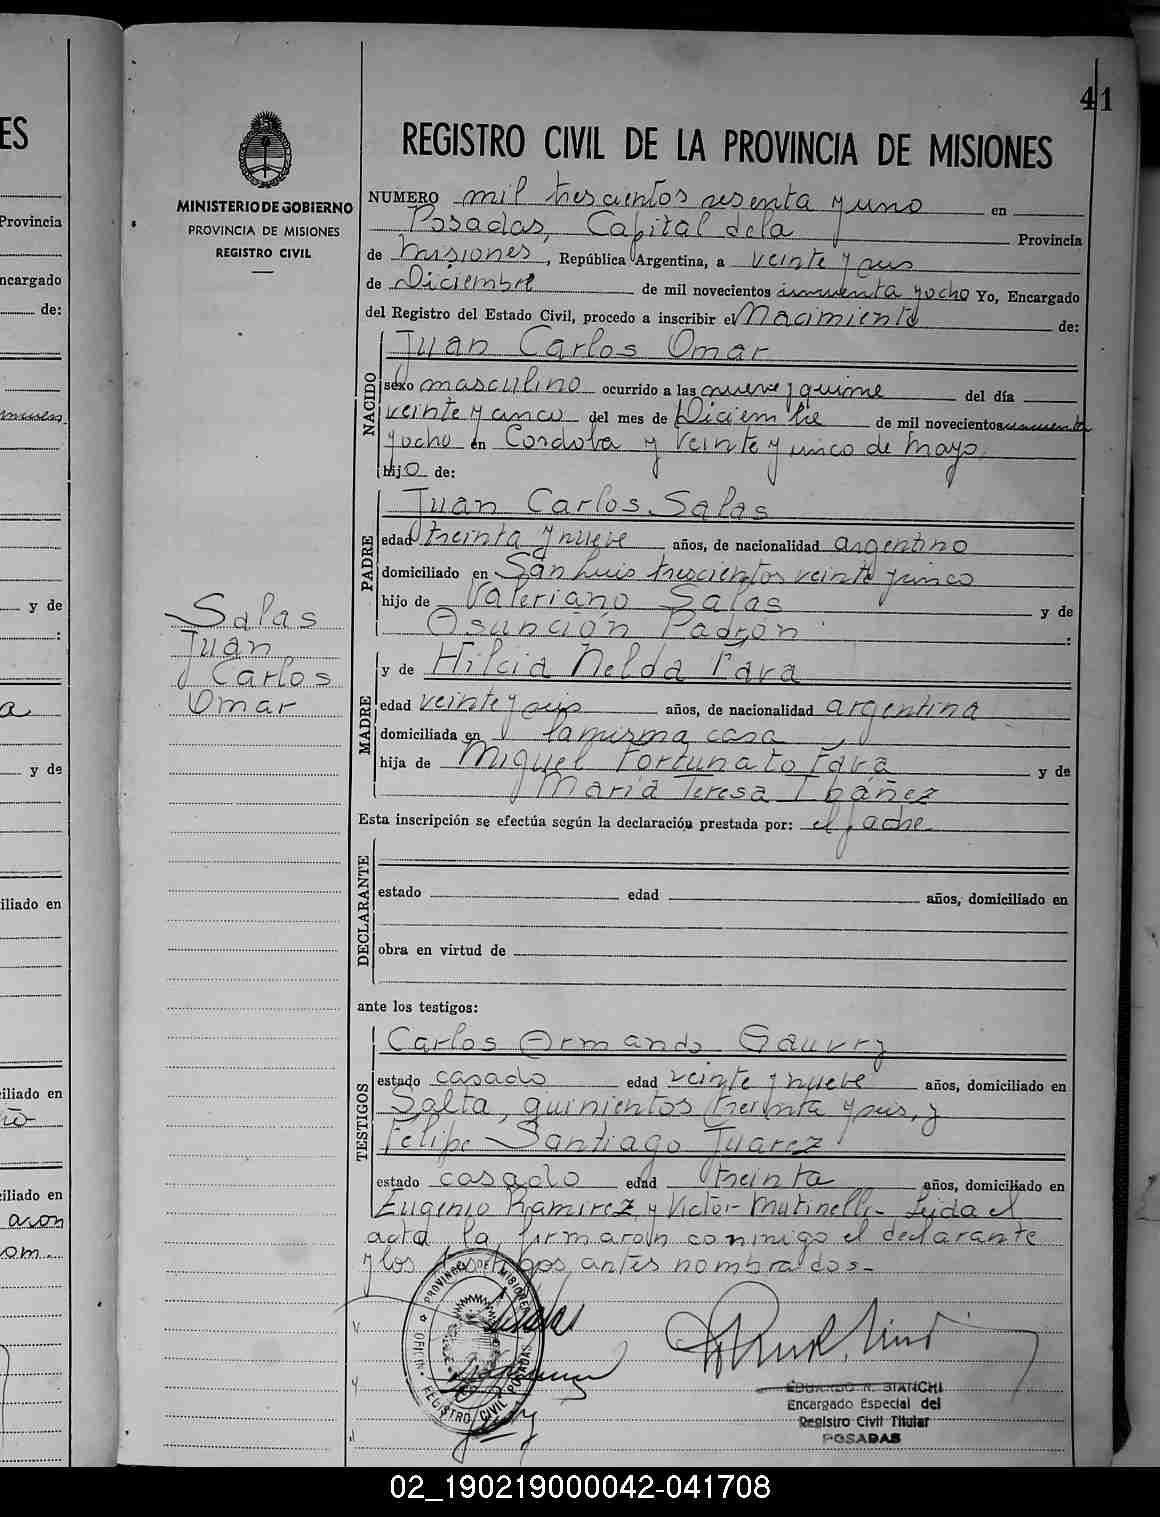 41
REGISTRO CIVIL DE LA PROVINCIA DE MISIONES
MINISTERIO DE GOBIERNO
PROVINCIA DE MISIONES
REGISTRO CIVIL
NUMERO mil trescientos sesenta y uno en
Posadas, Capital de la Provincia
de Misiones, República Argentina, a veinte y seis
de Diciembre de mil novecientos cincuenta y ocho Yo, Encargado
del Registro del Estado Civil, procedo a inscribir el Nacimiento de:
NACIDO
Juan Carlos Omar
sexo masculino ocurrido a las nueve y quince del día
veinte y cinco del mes de Diciembre de mil novecientos cincuenta
y ocho en Cordoba y veinte y cinco de Mayo.
hijo de:
PADRE
Juan Carlos Salas
edad treinta y nueve años, de nacionalidad argentino
domiciliado en San Luis trescientos veinte y cinco
hijo de Valeriano Salas y de
Asunción Padrón :
Salas
Juan
Carlos
Omar
MADRE
y de Hilcia Nelda Fava
edad veinte y seis años, de nacionalidad argentina
domiciliada en la misma casa
hija de Miguel Fortunato Fava y de
María Teresa Ibáñez
Esta inscripción se efectúa según la declaración prestada por: el padre
DECLARANTE
estado edad años, domiciliado en
obra en virtud de
ante los testigos:
TESTIGOS
Carlos Armando Gauvry
estado casado edad veinte y nueve años, domiciliado en
Salta, quinientos treinta y seis, y
Felipe Santiago Juarez
estado casado edad treinta años, domiciliado en
Eugenio Ramirez y Victor Mutinelli- Leida el
acta, la firmaron conmigo el declarante
y los testigos antes nombrados-
PROVINCIA DE MISIONES
OFICINA REGISTRO CIVIL POSADAS
EDUARDO R. BIANCHI
Encargado Especial del
Registro Civil Titular
POSADAS
ES
Provincia
ncargado
de:
y de
:
a
y de
iliado en
iliado en
iliado en
02_190219000042-041708